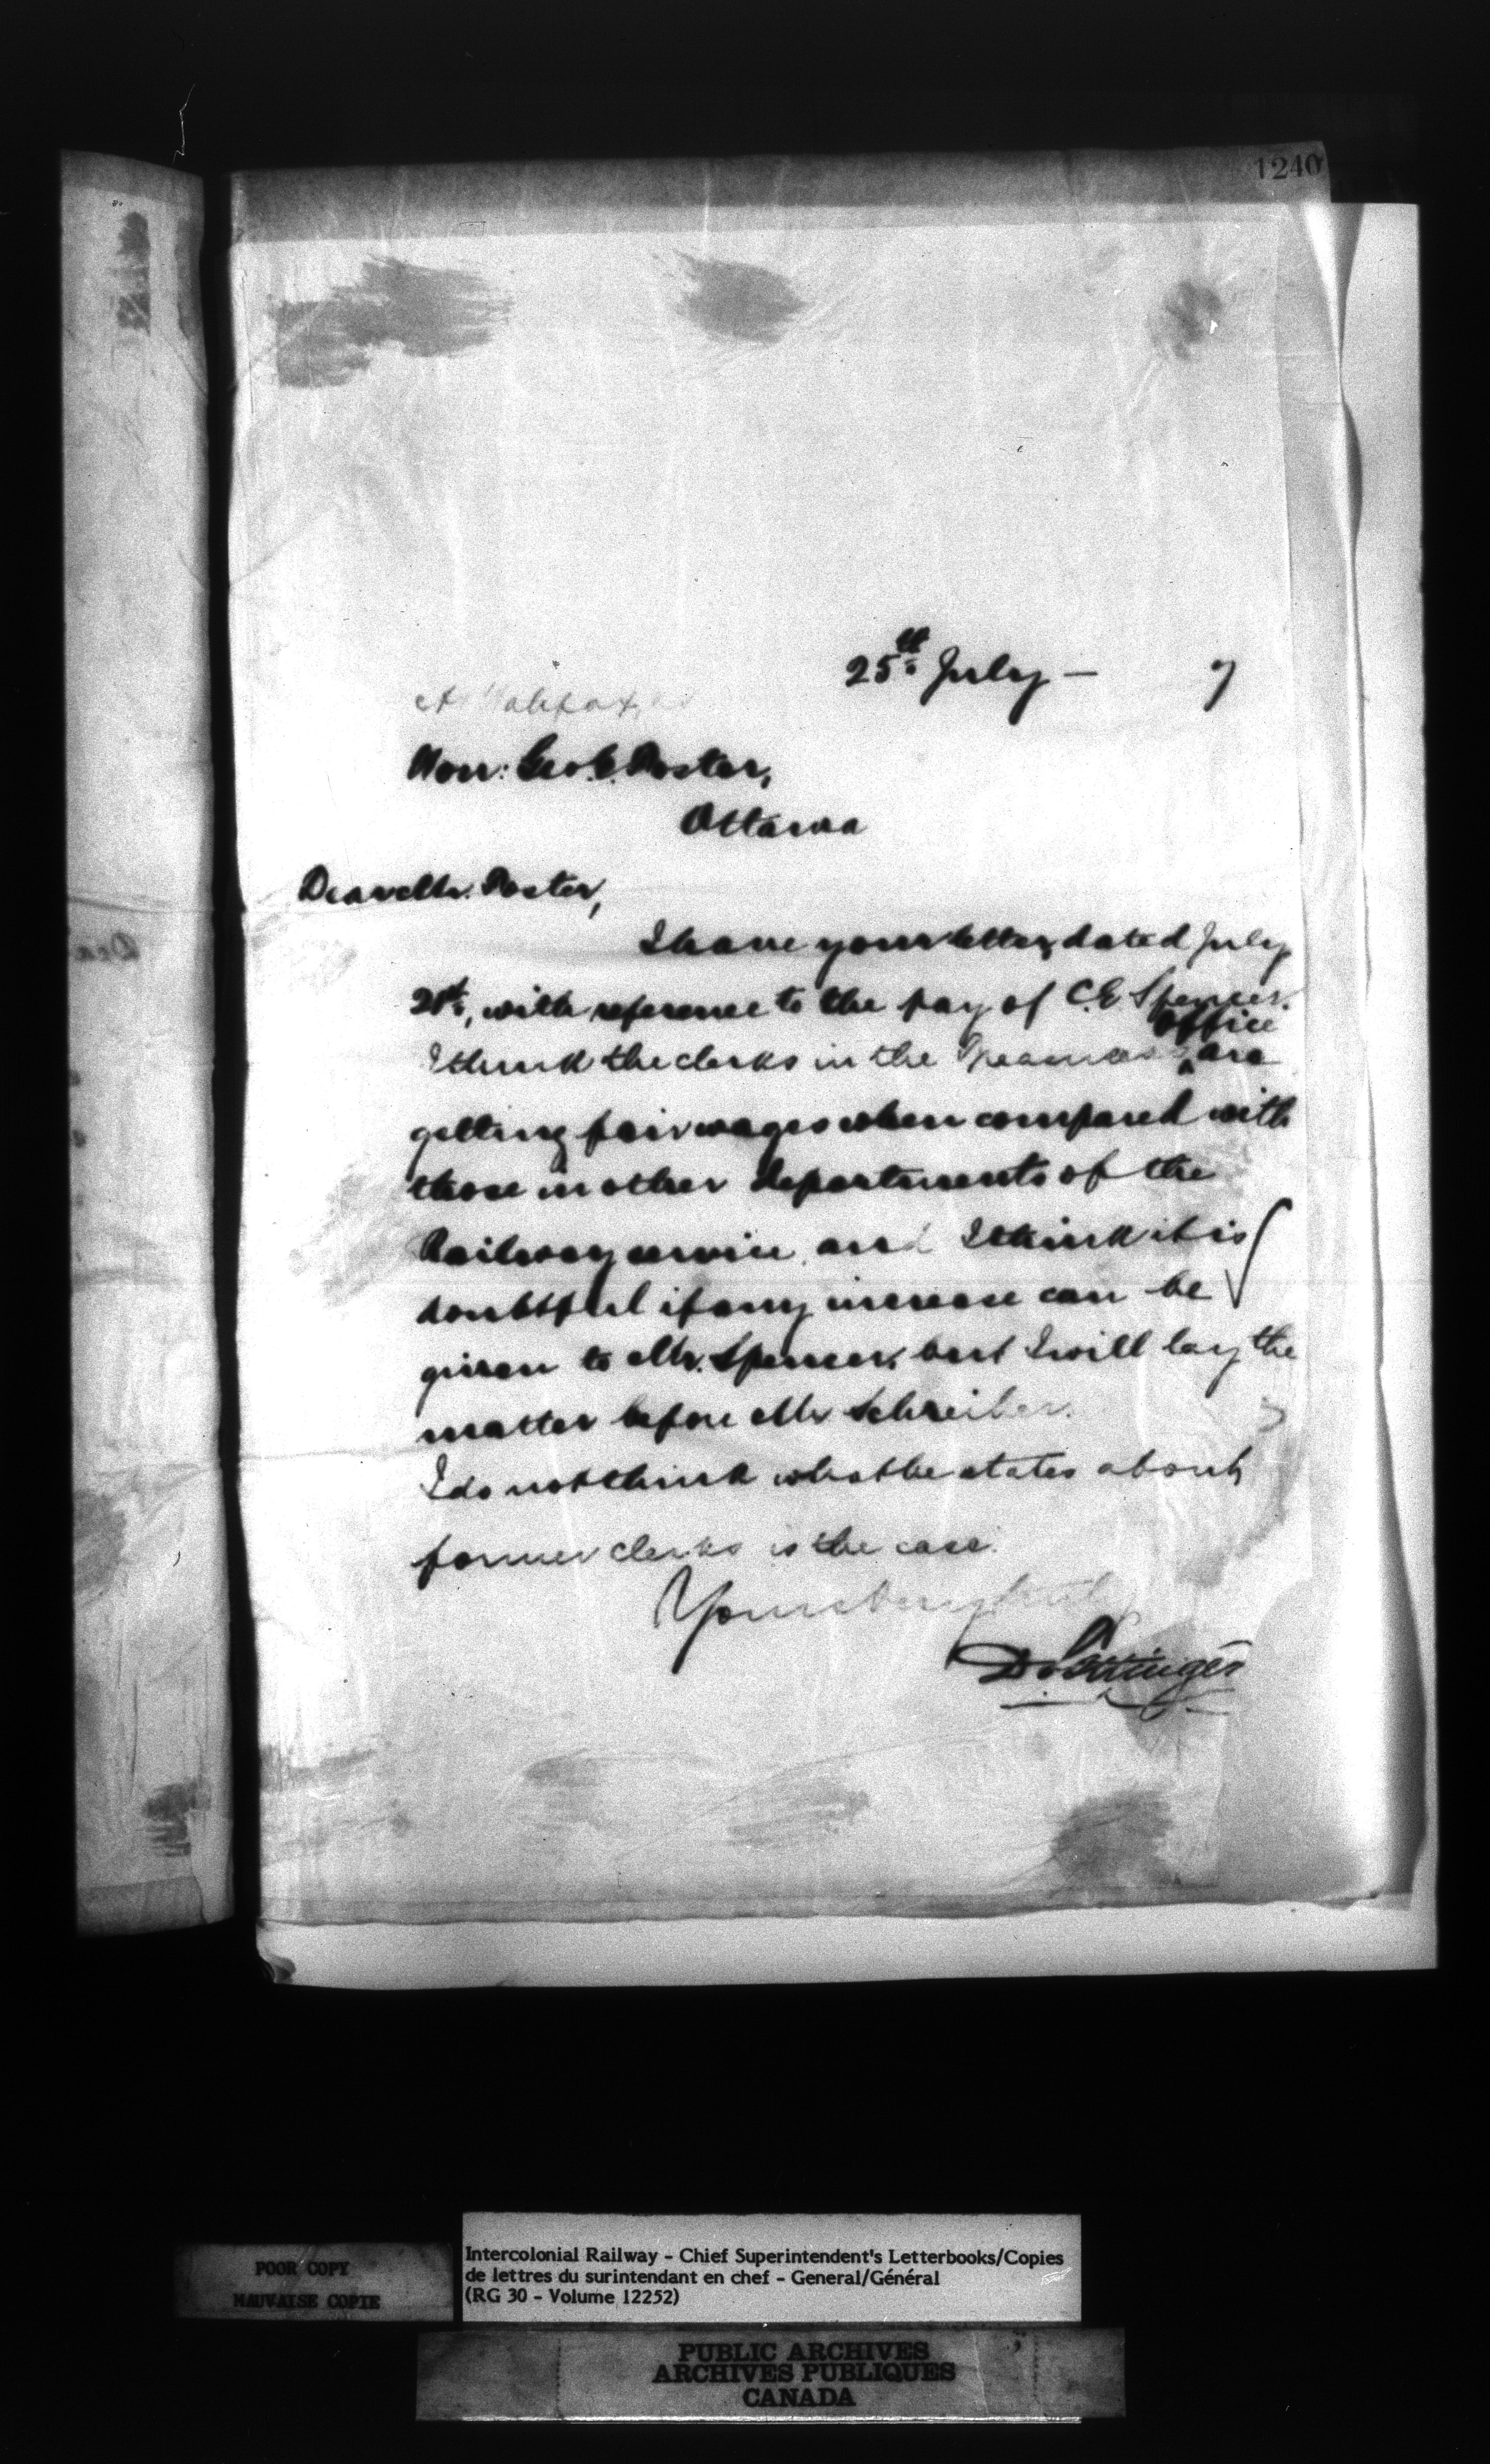 1240
25th July — 7
At Halifax,
Hon: Geo. E. Foster,
Ottawa
Dear Mr. Foster,
I have your letter dated July
21st, with reference to the pay of C. E. Spencer.
Office
I think the clerks in the Treasurer's are
getting fair wages when compared with
those in other departments of the
Railway service, and I think it is
doubtful if any increase can be
given to Mr. Spencer, but I will lay the
matter before Mr Schreiber.
I do not think what he states about
former clerks is the case.
Yours very truly
D. Pottinger
POOR COPY
MAUVAISE COPIE
Intercolonial Railway - Chief Superintendent's Letterbooks/Copies
de lettres du surintendant en chef - General/Général
(RG 30 - Volume 12252)
PUBLIC ARCHIVES
ARCHIVES PUBLIQUES
CANADA